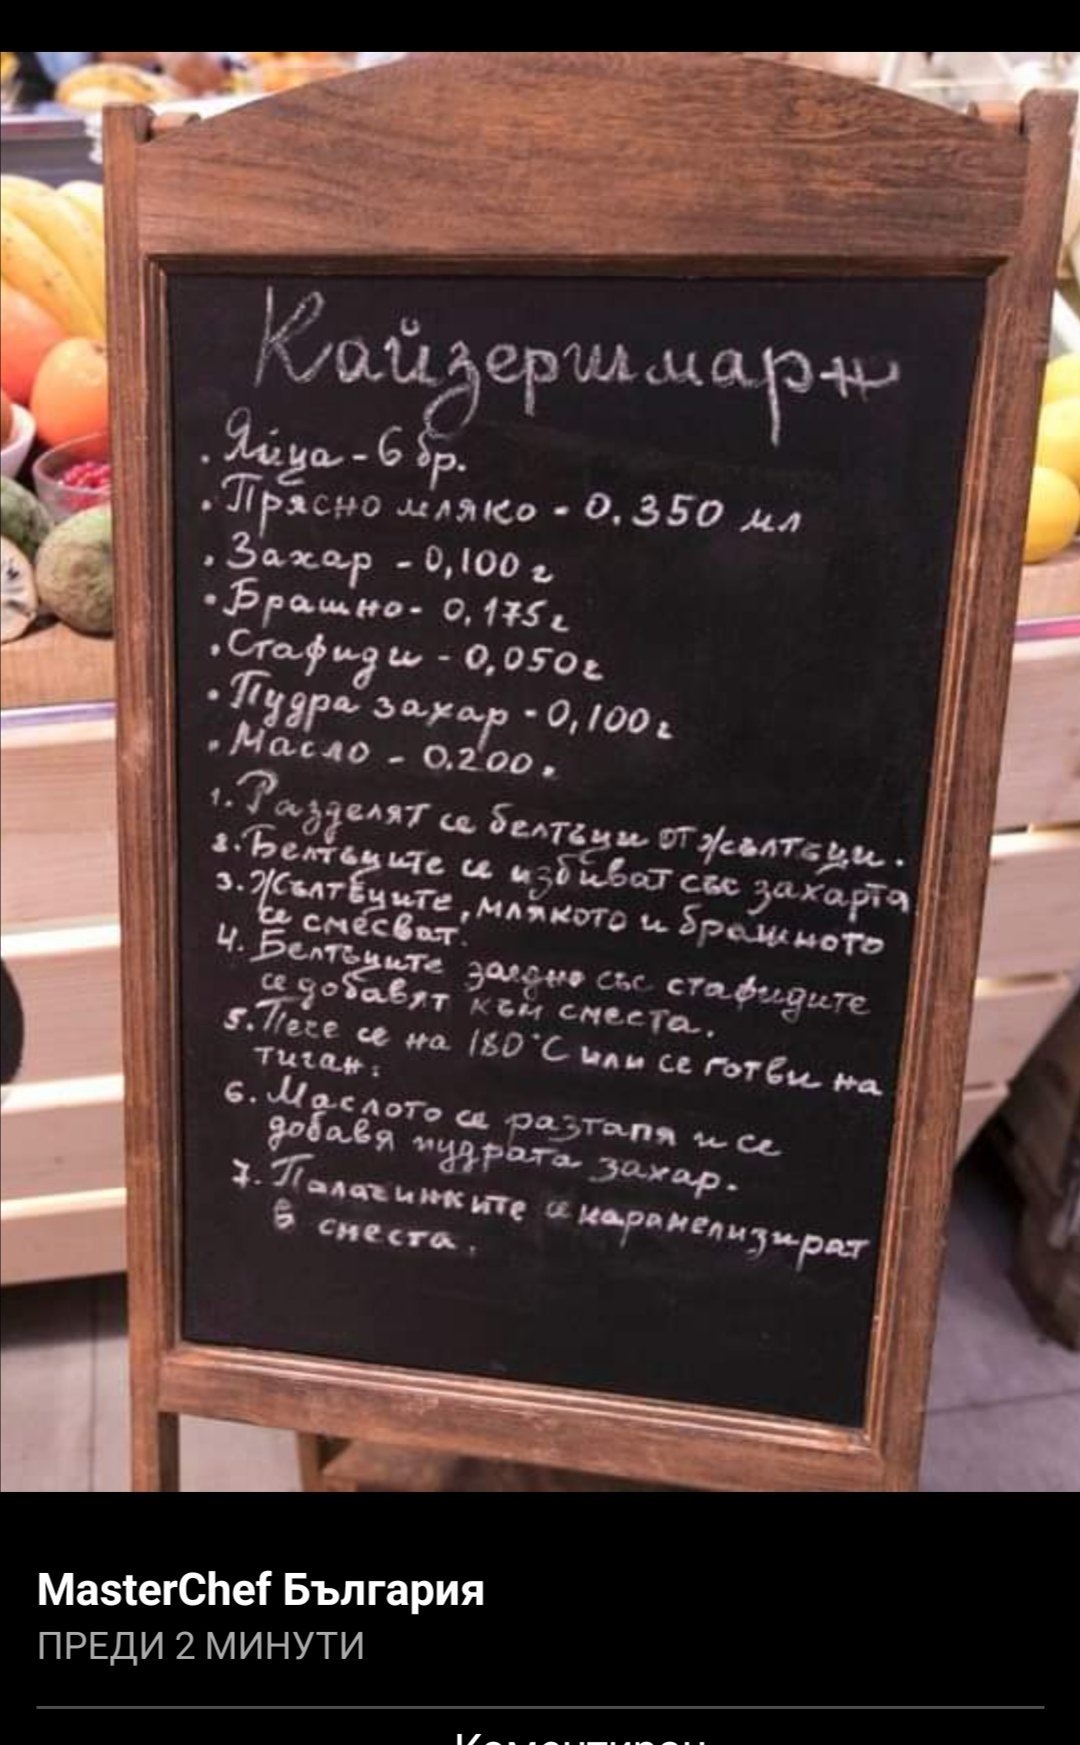 Кайзершмарн
. Яйца - 6 бр.
. Прясно мляко - 0.350 мл
. Захар - 0,100 г
. Брашно - 0.175г
. Стафиди - 0,050г
. Пудра захар - 0,100г
. Масло - 0.200.
1. Разделят се белтъци от жълтъци.
2. Белтъците се избиват със захарта
3. Жълтъците, млякото и брашното
се смесват.
4. Белтъците заедно със стафидите
се добавят към сместа.
5. Пече се на 180°C или се готви на
тиган.
6. Маслото се разтапя и се
добавя пудрата захар.
7. Палачинките се карамелизират
в сместа.
MasterChef България
ПРЕДИ 2 МИНУТИ